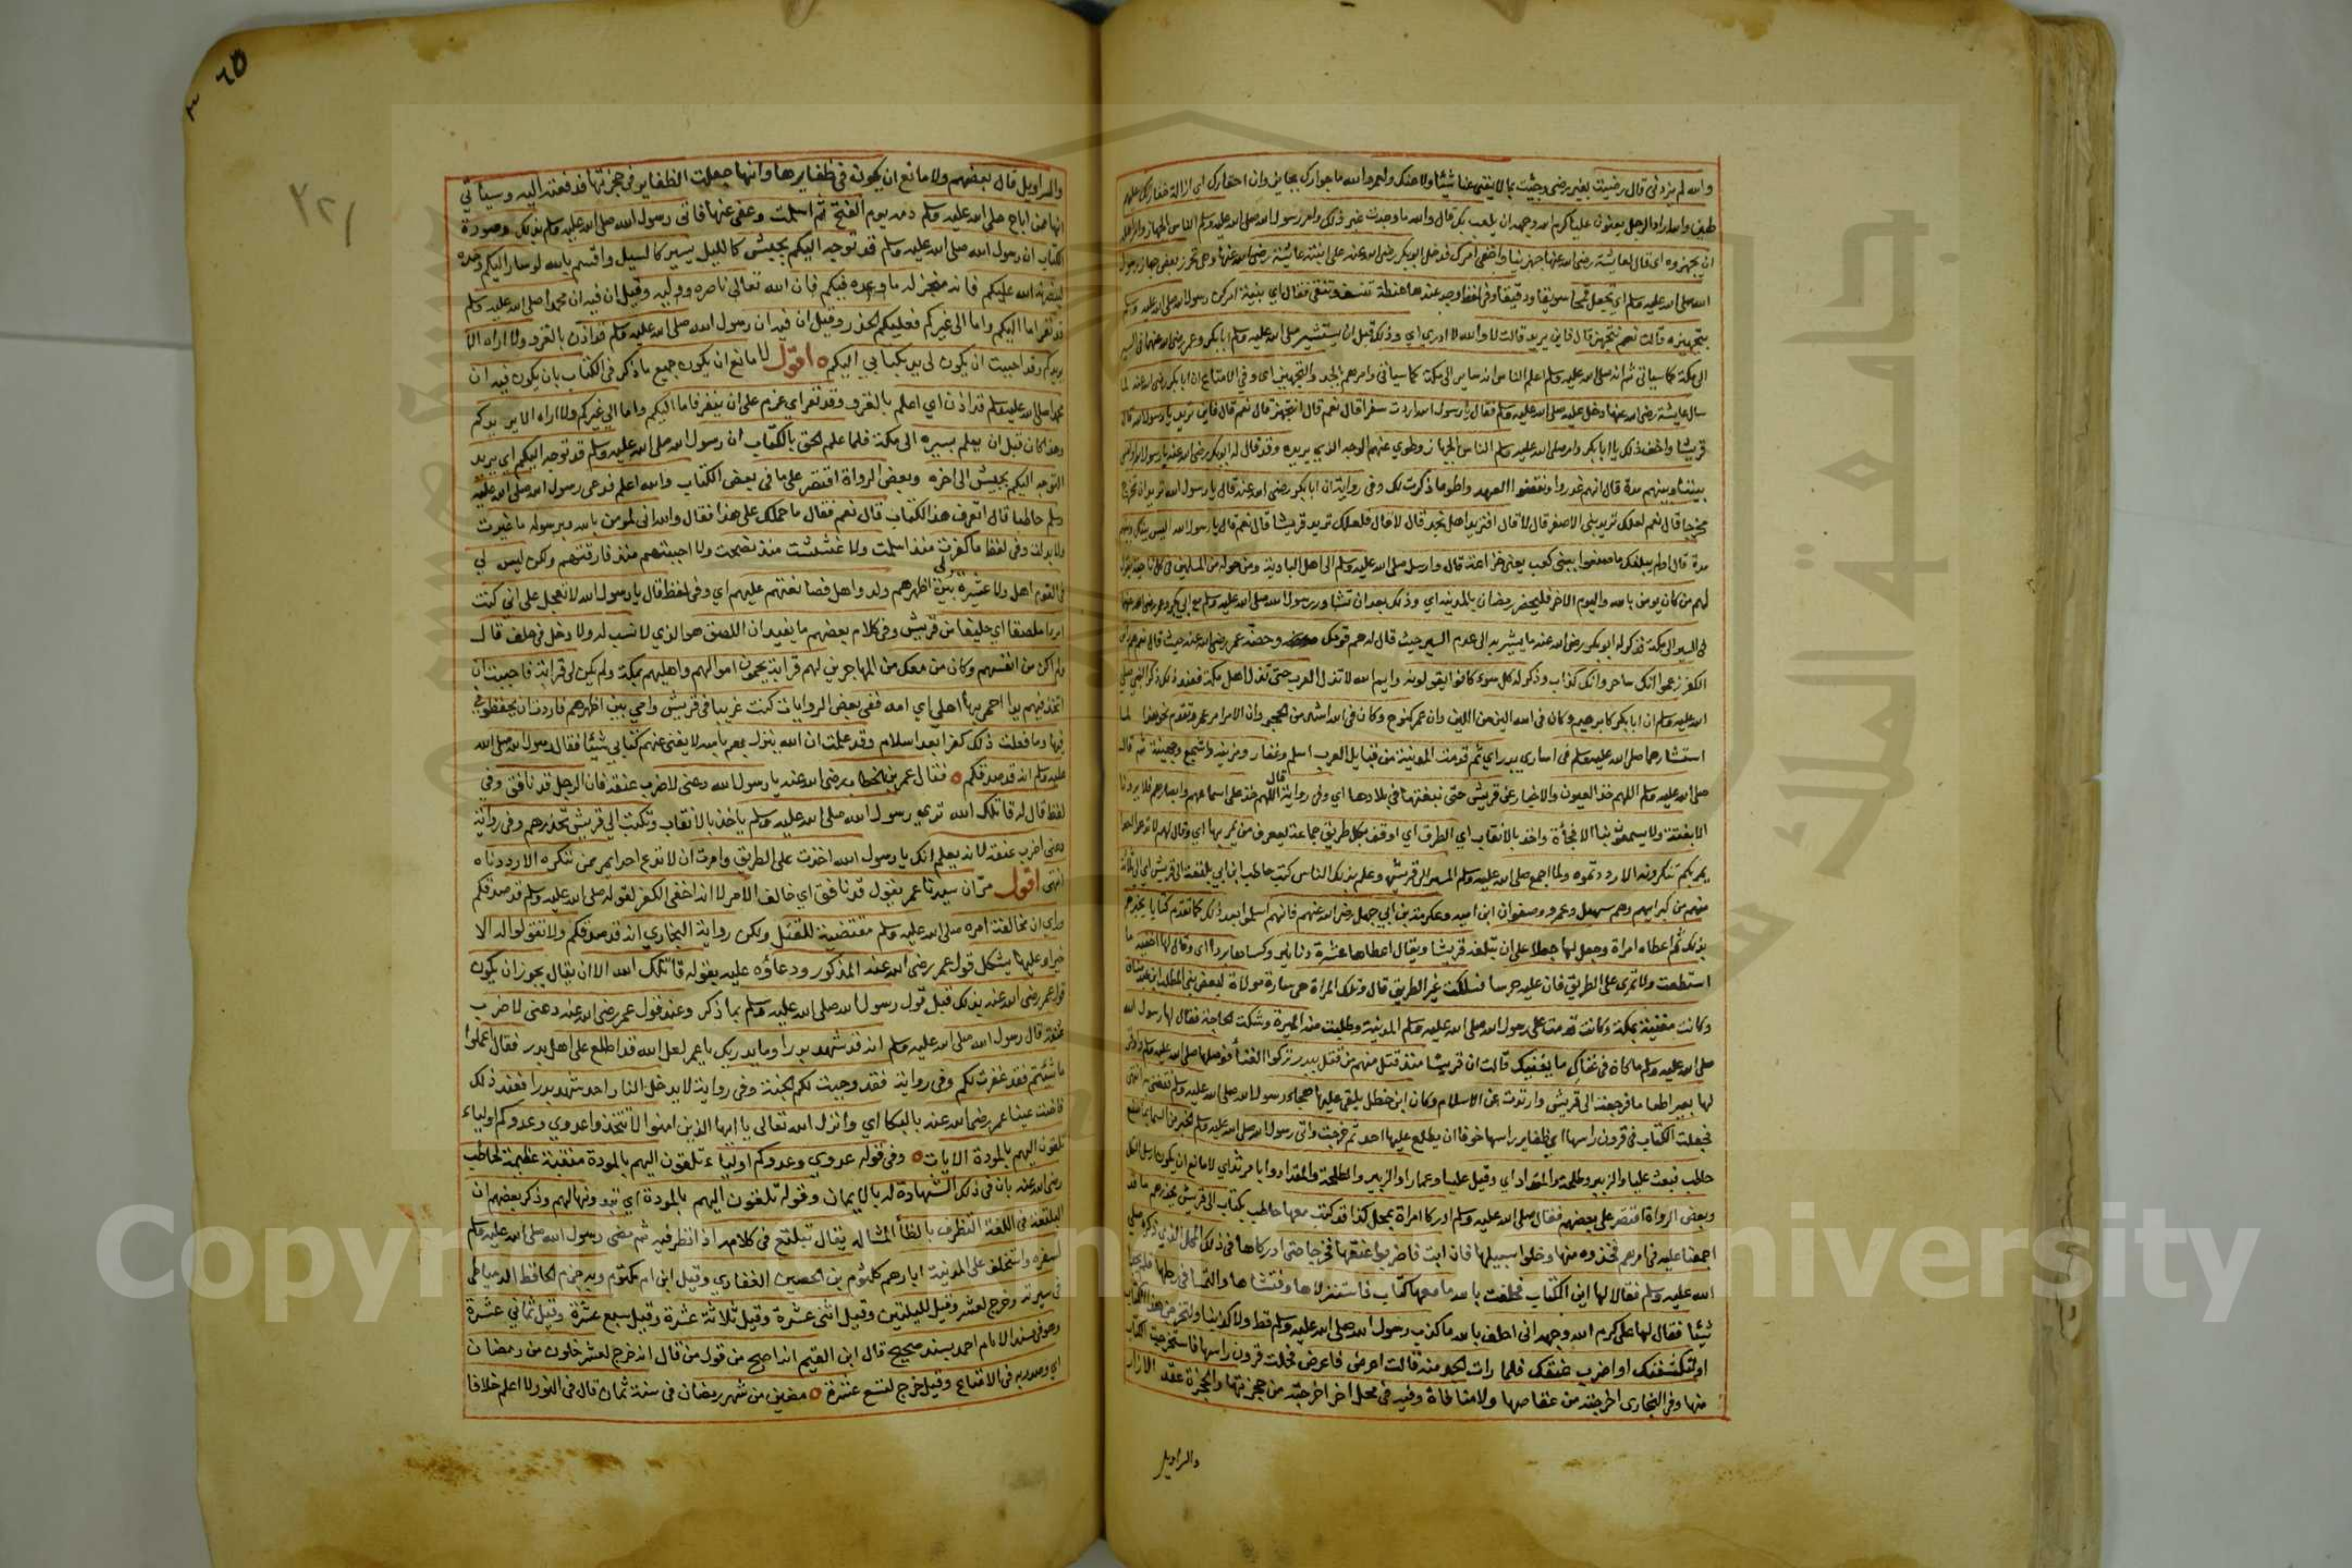 والله لم يزدني قال رضيت بغير رضى وجئت بما لا يغني عنا شيئا ولا عنك ولعمر الله ما جوارك بجايز وان اخفارك اي ازالة خفارتك عليهم
والله ان اراد الرجل يعنون عليا كرم الله وجهه ان يلعب بك قال والله ما وجدت غير ذلك وامر رسول الله صلى الله عليه وسلم الناس بالجهاز وامر اهله
ان يجهزوه اي قال لعايشة رضى الله عنها جهزينا واخفي امرك فدخل ابو بكر رضى الله عنه على ابنته عائشة رضى الله عنها وهي تحرك بعض جهاز رسول
الله صلى الله عليه وسلم اي تجعل قمحا سويقا ودقيقا وفي لفظ وجد عندها حنطة تنسف وتنقى فقال اي بنية امركن رسول الله صلى الله عليه وسلم
بتجهيزه قالت نعم فتجهز قال فاين يريد قالت لا والله لا ادري اي وذلك قبل ان يستشير صلى الله عليه وسلم ابا بكر وعمر رضى الله عنهما في السير
الى مكة كما سياتي ثم انه صلى الله عليه وسلم اعلم الناس انه ساير الى مكة كما سياتي وامرهم بالجد والتجهيز اي وفي الامتاع ان ابا بكر رضى الله عنه لما
سال عايشة رضى الله عنها دخل عليه صلى الله عليه وسلم فقال يا رسول الله اردت سفرا قال نعم قال افاتجهز قال نعم قال فاين تريد يا رسول الله قال
قريشا واخف ذلك يا ابا بكر وامر صلى الله عليه وسلم الناس بالجهاز وطوي عنهم الوجه الذي يريده وقد قال له ابو بكر رضى الله عنه يا رسول الله اوليس
بيننا وبينهم مدة قال انهم غدروا ونقضوا العهد واطو ما ذكرت لك وفي رواية ان ابا بكر رضى الله عنه قال يا رسول الله اتريد ان تخرج
مخرجا قال نعم لعلك تريد بني الاصفر قال لا قال افتريد اهل نجد قال لا قال فلعلك تريد قريشا قال نعم قال يا رسول الله اليس بينك وبينهم
مدة قال اولم يبلغك ما صنعوا ببني كعب يعني خزاعة قال وارسل صلى الله عليه وسلم الى اهل البادية ومن حوله من المسلمين في كل ناحية يقول
لهم من كان يومن بالله واليوم الاخر فليحضر رمضان بالمدينة اي وذلك بعد ان تشاور رسول الله صلى الله عليه وسلم مع ابي بكر وعمر رضى الله عنهما
في السير الى مكة فذكر له ابو بكر رضى الله عنه ما يشير به الى عدم السير حيث قال له هم قومك وحضه عمر رضى الله عنه حيث قال نعم هم راس
الكفر زعموا انك ساحر وانك كذاب وذكر له كل سوء كانوا يقولونه وايم الله لا تذل العرب حتى تذل اهل مكة فعند ذلك ذكر النبي صلى
الله عليه وسلم ان ابا بكر كابراهيم وكان في الله الين من اللين وان عمر كنوح وكان في الله اشد من الحجر وان الامر امر عمر وتقدم نحو هذا لما
استشارهما صلى الله عليه وسلم في اسارى بدر اي ثم قدمت المدينة من قبايل العرب اسلم وغفار ومزينة واشجع وجهينة ثم قال
صلى الله عليه وسلم اللهم خذ العيون والاخبار عن قريش حتى نبغتها في بلادها اي وفي رواية قال اللهم خذ على اسماعهم وابصارهم فلا يرونا
الا بغتة ولا يسمعون بنا الا فجأة واخذ بالانقاب اي الطرق اي اوقف بكل طريق جماعة ليعرف من يمر بها اي وقال لهم لا تدعوا احدا
يمر بكم تنكرونه الا رددتموه ولما اجمع صلى الله عليه وسلم المسير الى قريش وعلم بذلك الناس كتب حاطب ابن ابي بلتعة الى قريش اي الى ثلاثة
منهم من كبرايهم وهم سهيل وعمرو وصفوان ابن امية وعكرمة بن ابي جهل رضى الله عنهم فانهم اسلموا بعد ذلك كما تقدم كتابا يخبرهم
بذلك ثم اعطاه امراة وجعل لها جعلا على ان تبلغه قريشا ويقال اعطاها عشرة دنانير وكساها بردا اي وقال لها اخفيه ما
استطعت ولا تمري على الطريق فان عليه حرسا فسلكت غير الطريق قال وتلك المراة هي سارة مولاة لبعض بني المطلب ابن عبد مناف
وكانت مغنية بمكة وكانت قدمت على رسول الله صلى الله عليه وسلم المدينة وطلبت منه الميرة وشكت الحاجة فقال لها رسول الله
صلى الله عليه وسلم ما كان في غناك ما يغنيك قالت ان قريشا منذ قتل منهم من قتل ببدر تركوا الغناء فوصلها صلى الله عليه وسلم واوقر
لها بعيرا طعاما فرجعت الى قريش وارتدت عن الاسلام وكان ابن خطل يلقي عليها هجاء رسول الله صلى الله عليه وسلم فتغني به انتهى
فجعلت الكتاب في قرون راسها اي ظفاير راسها خوفا ان يطلع عليها احد ثم خرجت واتى رسول الله صلى الله عليه وسلم الخبر من السماء بما صنع
حاطب فبعث عليا والزبير وطلحة والمقداد اي وقيل عليا وعمارا والزبير وطلحة والمقداد وابا مرثد اي لا مانع ان يكون ارسل الكل
وبعض الرواة اقتصر على بعضهم فقال صلى الله عليه وسلم ادركا امراة بمحل كذا قد كتب معها حاطب بكتاب الى قريش يحذرهم ما قد
اجمعنا عليه في امرهم فخذوه منها وخلوا سبيلها فان ابت فاضربوا عنقها فخرجا حتى ادركاها في ذلك المحل الذي ذكره صلى
الله عليه وسلم فقالا لها اين الكتاب فحلفت بالله ما معها كتاب فاستنزلاها وفتشاها والتمسا في رحلها فلم يجدا
شيئا فقال لها علي كرم الله وجهه اني احلف بالله ما كذب رسول الله صلى الله عليه وسلم قط ولا كذبنا ولتخرجن هذا الكتاب
او لنكشفنك او اضرب عنقك فلما رات الجد منه قالت اعرض فاعرض فحلت قرون راسها فاستخرجت الكتاب
منها وفي البخاري اخرجته من عقاصها ولا منافاة وفيه في محل اخر اخرجته من حجزتها والحجزة معقد الازار
والسراويل
والسراويل قال بعضهم ولا مانع ان يكون في ظفايرها وانها جعلت الظفاير في حجزتها فدفعته اليه وسياتي
انها ممن اباح صلى الله عليه وسلم دمه يوم الفتح ثم اسلمت وعفى عنها فاتى رسول الله صلى الله عليه وسلم بذلك وصورة
الكتاب ان رسول الله صلى الله عليه وسلم قد توجه اليكم بجيش كالليل يسير كالسيل واقسم بالله لو سار اليكم وحده
لينصرنه الله عليكم فانه منجز له ما وعده فيكم فان الله تعالى ناصره ووليه وقيل ان فيه ان محمدا صلى الله عليه وسلم
قد نفر اما اليكم واما الى غيركم فعليكم الحذر وقيل ان فيه ان رسول الله صلى الله عليه وسلم قد اذن بالغزو ولا اراه الا
يريدكم وقد احببت ان يكون لي يد بكتابي اليكم اقول لا مانع ان يكون جميع ما ذكر في الكتاب بان يكون فيه ان
محمدا صلى الله عليه وسلم قد اذن اي اعلم بالغزو وقد نفر اي عزم على ان ينفر فاما اليكم واما الى غيركم ولا اراه الا يريدكم
وهذا كان قبل ان يعلم بسيره الى مكة فلما علم الحق بالكتاب ان رسول الله صلى الله عليه وسلم قد توجه اليكم اي يريد
التوجه اليكم بجيش الى اخره وبعض الرواة اقتصر على ما في بعض الكتاب والله اعلم فدعى رسول الله صلى الله عليه
وسلم حاطبا قال اتعرف هذا الكتاب قال نعم فقال ما حملك على هذا فقال والله اني لمومن بالله وبرسوله ما غيرت
ولا بدلت وفي لفظ ما كفرت منذ اسلمت ولا غششت منذ نصحت ولا احببتهم منذ فارقتهم ولكن ليس لي
في القوم اهل ولا عشيرة ولي بين اظهرهم ولد واهل فصانعتهم عليهم اي وفي لفظ قال يا رسول الله لا تعجل علي اني كنت
امرءا ملصقا اي حليفا من قريش وفي كلام بعضهم ما يفيد ان اللصق هو الذي لا نسب له ولا دخل في حلف قال
ولم اكن من انفسهم وكان من معك من المهاجرين لهم قرابة يحمون اموالهم واهليهم بمكة ولم يكن لي قرابة فاحببت ان
اتخذ فيهم يدا احمي بها اهلي اي امه ففي بعض الروايات كنت غريبا في قريش وامي بين اظهرهم فاردت ان يحفظوني
فيها وما فعلت ذلك كفرا بعد اسلام وقد علمت ان الله ينزل بهم باسه لا يغني عنهم كتابي شيئا فقال رسول الله صلى الله
عليه وسلم انه قد صدقكم فقال عمر بن الخطاب رضى الله عنه يا رسول الله دعني لاضرب عنقه فان الرجل قد نافق وفي
لفظ قال له قاتلك الله ترى رسول الله صلى الله عليه وسلم ياخذ بالانقاب وتكتب الى قريش تحذرهم وفي رواية
دعني اضرب عنقه لانه يعلم انك يا رسول الله اخذت على الطريق وامرت ان لا ندع احدا يمر ممن ننكره الا رددناه
انتهى اقول مر ان سيدنا عمر بقول قد نافق اي خالف الامر لا انه اخفى الكفر لقوله صلى الله عليه وسلم قد صدقكم
وراى ان مخالفة امره صلى الله عليه وسلم مقتضية للقتل ولكن رواية البخاري انه قد صدقكم ولا تقولوا له الا
خيرا وعليها يشكل قول عمر رضى الله عنه المذكور ودعاؤه عليه بقوله قاتلك الله الا ان يقال يجوز ان يكون
قول عمر رضى الله عنه بذلك قبل قول رسول الله صلى الله عليه وسلم بما ذكر وعند قول عمر رضى الله عنه دعني لاضرب
عنقه قال رسول الله صلى الله عليه وسلم انه قد شهد بدرا وما يدريك يا عمر لعل الله قد اطلع على اهل بدر فقال اعملوا
ما شئتم فقد غفرت لكم وفي رواية فقد وجبت لكم الجنة وفي رواية لا يدخل النار احد شهد بدرا فعند ذلك
فاضت عينا عمر رضى الله عنه بالبكا اي وانزل الله تعالى يا ايها الذين امنوا لا تتخذوا عدوي وعدوكم اولياء
تلقون اليهم بالمودة الايات وفي قوله عدوي وعدوكم اولياء تلقون اليهم بالمودة منقبة عظيمة لحاطب
رضى الله عنه بان في ذلك الشهادة له بالايمان وقوله تلقون اليهم بالمودة اي تبدونها لهم وذكر بعضهم ان
البلتعة في اللغة التظرف بالظاء المشالة يقال تبلتع في كلامه اذا تظرف فيه ثم مضى رسول الله صلى الله عليه وسلم
لسفره واستخلف على المدينة ابا رهم كلثوم بن الحصين الغفاري وقيل ابن ام مكتوم وبه جزم الحافظ الدمياطي
في سيرته وخرج لعشر وقيل لليلتين وقيل اثنى عشرة وقيل ثلاثة عشرة وقيل سبع عشرة وقيل ثماني عشرة
وهو في مسند الامام احمد بسند صحيح قال ابن القيم انه اصح من قول من قال انه خرج لعشر خلون من رمضان
اي وصدر به في الامتاع وقيل خرج لتسع عشرة مضين من شهر رمضان في سنة ثمان قال في النور لا اعلم خلافا